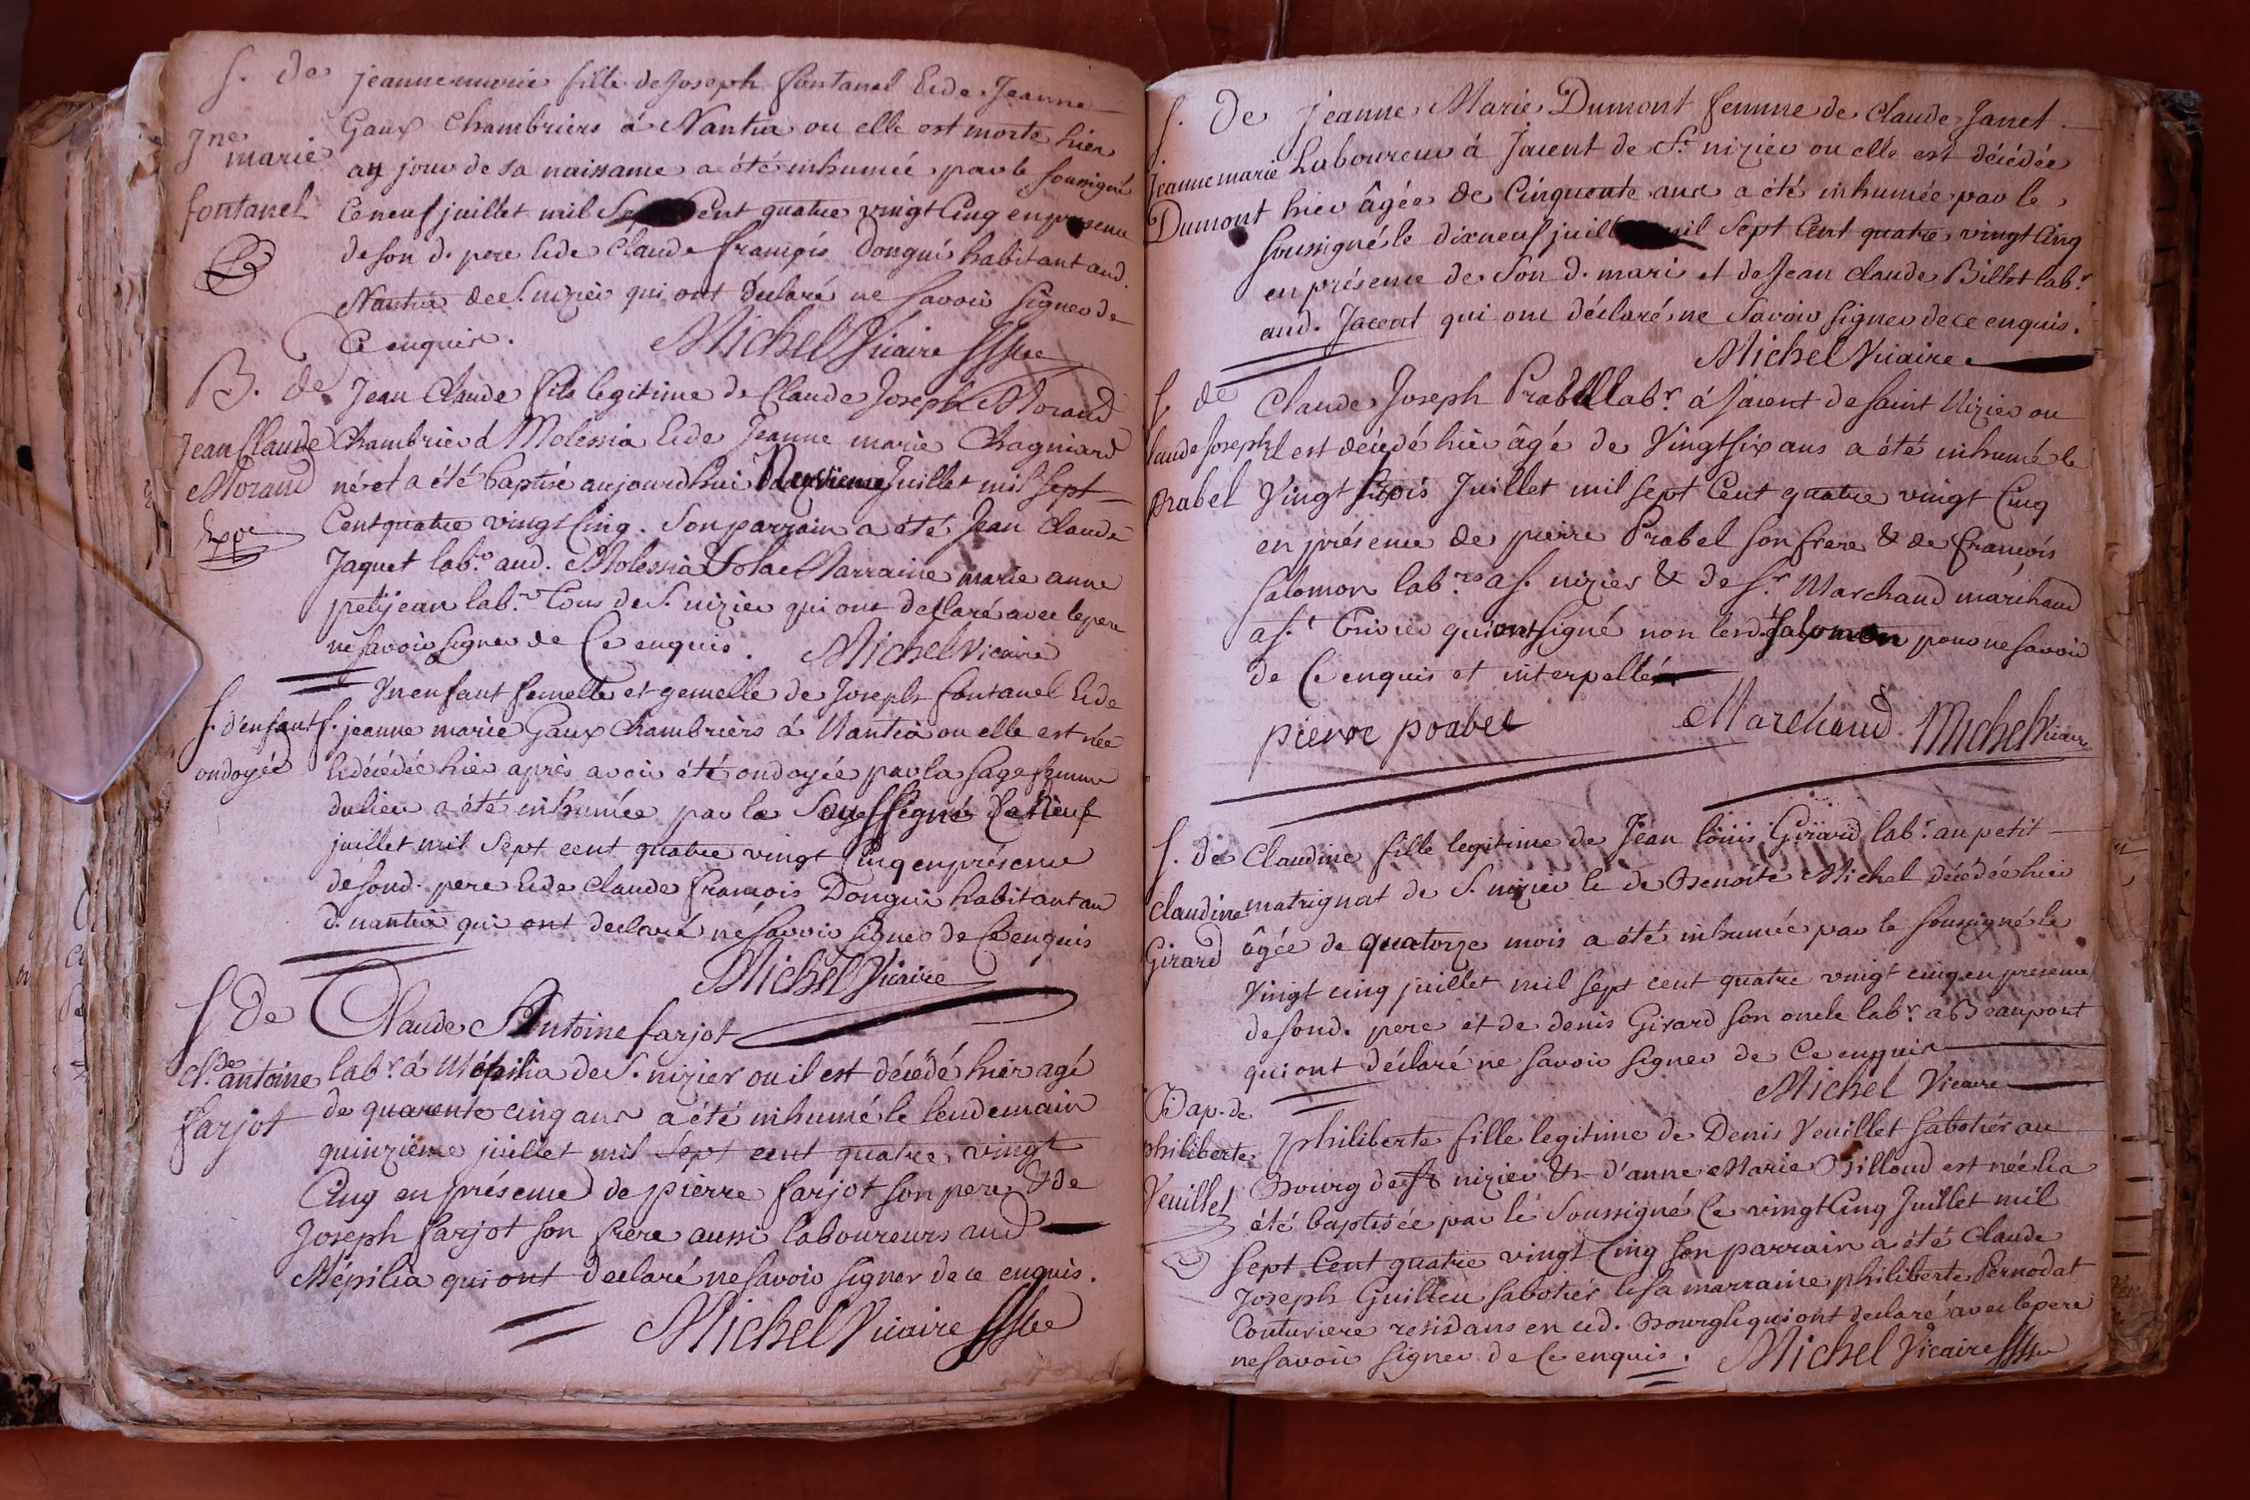 S. de jeanne marie fille de Joseph fontanel & de Jeanne
Jne marie Gaux Chambriers á Nantua ou elle est morte hier
fontanel ay jour de sa naissance a été inhumée par le soussigné
Ce neuf juillet mil Sept Cent quatre vingt Cinq en presence
de son d. pere & de Claude françois Donguí habitant aud.
Nantua de S. nizier qui ont déclaré ne savoir signer de
Ce enquis. Michel Vicaire
B. de Jean Claude fils legitime de Claude Joseph Morand
Jean Claude Chambrier á Molessia & de Jeanne marie Chagniard
Morand né et a été baptisé aujourdhui Neuvieme Juillet mil Sept
Cent quatre vingt Cinq. Son parrain a été Jean claude
Jaquet labr. aud. Molessia & la Marraine marie anne
petijean labr. tous de S. nizier qui ont declaré avec le pere
ne savoir signer de Ce enquis. Michel Vicaire
Un enfant femelle et gemelle de Joseph fontanel & de
S. d'enfant f. jeanne marie Gaux Chambriers á Nantua ou elle est née
ondoyée & décédée hier après avoir été ondoyée par la sage femme
du lieu a été inhumée par le Soussigné Ce Neuf
juillet mil Sept cent quatre vingt Cinq en présence
de son d. pere & de Claude francois Donguin habitant au
d. nantua qui ont declaré ne savoir signer de Ce enquis
Michel Vicaire
S de Claude Antoine farjot
Cl.de antoine labr. á Mépilia de S. nizier ou il est décédé hier agé
farjot de quarente cinq ans a été inhumé le lendemain
quinzieme juillet mil Sept cent quatre vingt
Cinq en présence de pierre farjot son pere & de
Joseph farjot son frere aussi laboureurs aud
Mépilia qui ont declaré ne savoir signer de ce enquis.
Michel Vicaire
S. de jeanne Marie Dumont femme de claude Janet
Jeanne marie Laboureur á Jacent de St. nizier ou elle est décédée
Dumont hier âgée de Cinquante ans a été inhumée par le
soussigné le dixneuf juillet mil Sept Cent quatre vingt Cinq
en présence de Son d. mari et de Jean claude Billet labr.
aud. Jacent qui ont déclaré ne Savoir signer de ce enquis.
Michel Vicaire
S. de Claude Joseph Prabel labr. á Jacent de Saint Nizier ou
Claude Joseph il est décédé hier âgé de Vingt six ans a été inhumé le
Prabel Vingt trois Juillet mil sept Cent quatre vingt Cinq
en présence de pierre Prabel son frere & de françois
Salomon labrs. a s. nizier & de Sr. Marchand marchand
a St. Trivier qui ont signé non led. Salomon pour ne savoir
de Ce enquis et interpellé
pierre prabel Marchand Michel Vicaire
S. de Claudine fille legitime de Jean louis Girard labr. au petit
Claudine matrignat de S. nizier & de Benoite Michel décédée hier
Girard âgée de quatorze mois a été inhumée par le soussigné le
Vingt cinq juillet mil sept cent quatre vingt cinq en presence
de son d. pere et de denis Girard son oncle labr. a Beaupont
qui ont déclaré ne savoir signer de Ce enquis
Michel Vicaire
Bap. de philiberte fille legitime de Denis Veuillet sabotier au
philiberte Bourg de St nizier & d'anne Marie Billoud est née & a
Veuillet été baptisée par le Soussigné Ce vingt Cinq Juillet mil
sept Cent quatre vingt Cinq son parrain a été Claude
Joseph Guilleu sabotier & sa marraine philiberte Pernodat
Couturiere residans en ced. Bourg & qui ont declaré avec le pere
ne savoir signer de Ce enquis. Michel Vicaire